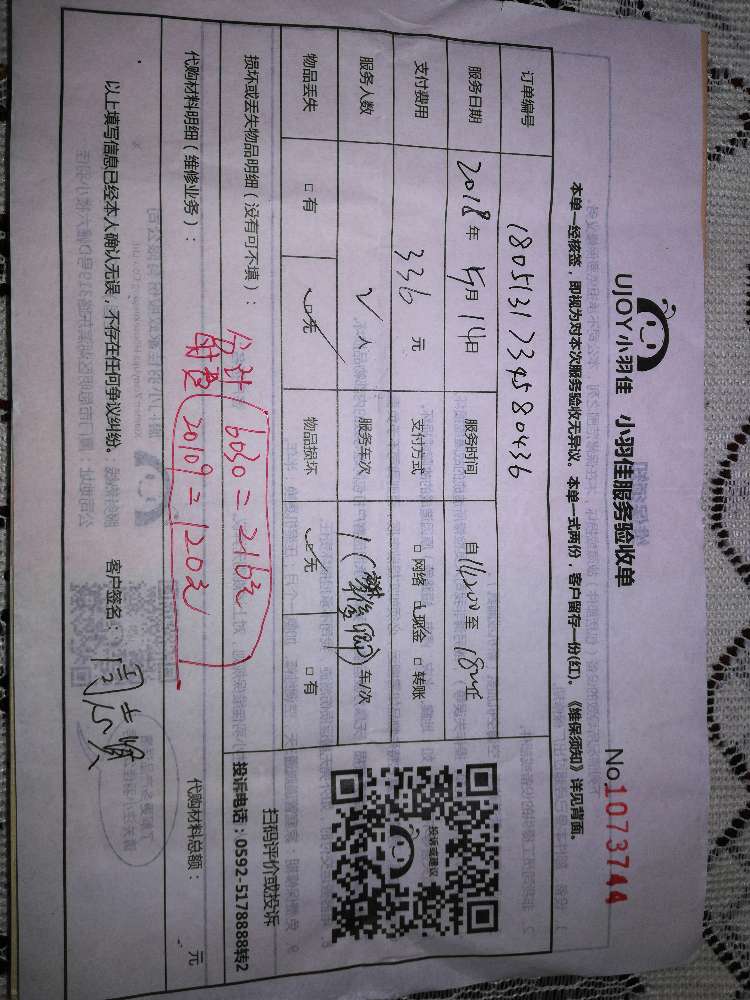 UJOY小羽佳 小羽佳服务验收单
No 1073744
本单一经核签，即视为对本次服务验收无异议。本单一式两份，客户留存一份(红)。《维保须知》详见背面。
订单编号 180513173458043 6
服务日期 2018年 5月 14日 服务时间 自 至
支付费用 336 元 支付方式 □网络 □现金 □转账
服务人数 人 服务车次 1 车/次
物品丢失 □有 □无 物品损坏 □无 □有
损坏或丢失物品明细（没有可不填）：
合计 6030=216元
20109=120元
代购材料明细（维修业务）：
代购材料总额： 元
以上填写信息已经本人确认无误，不存在任何争议纠纷。 客户签名：
投诉或建议
扫码评价或投诉
投诉电话：0592-5178888转2